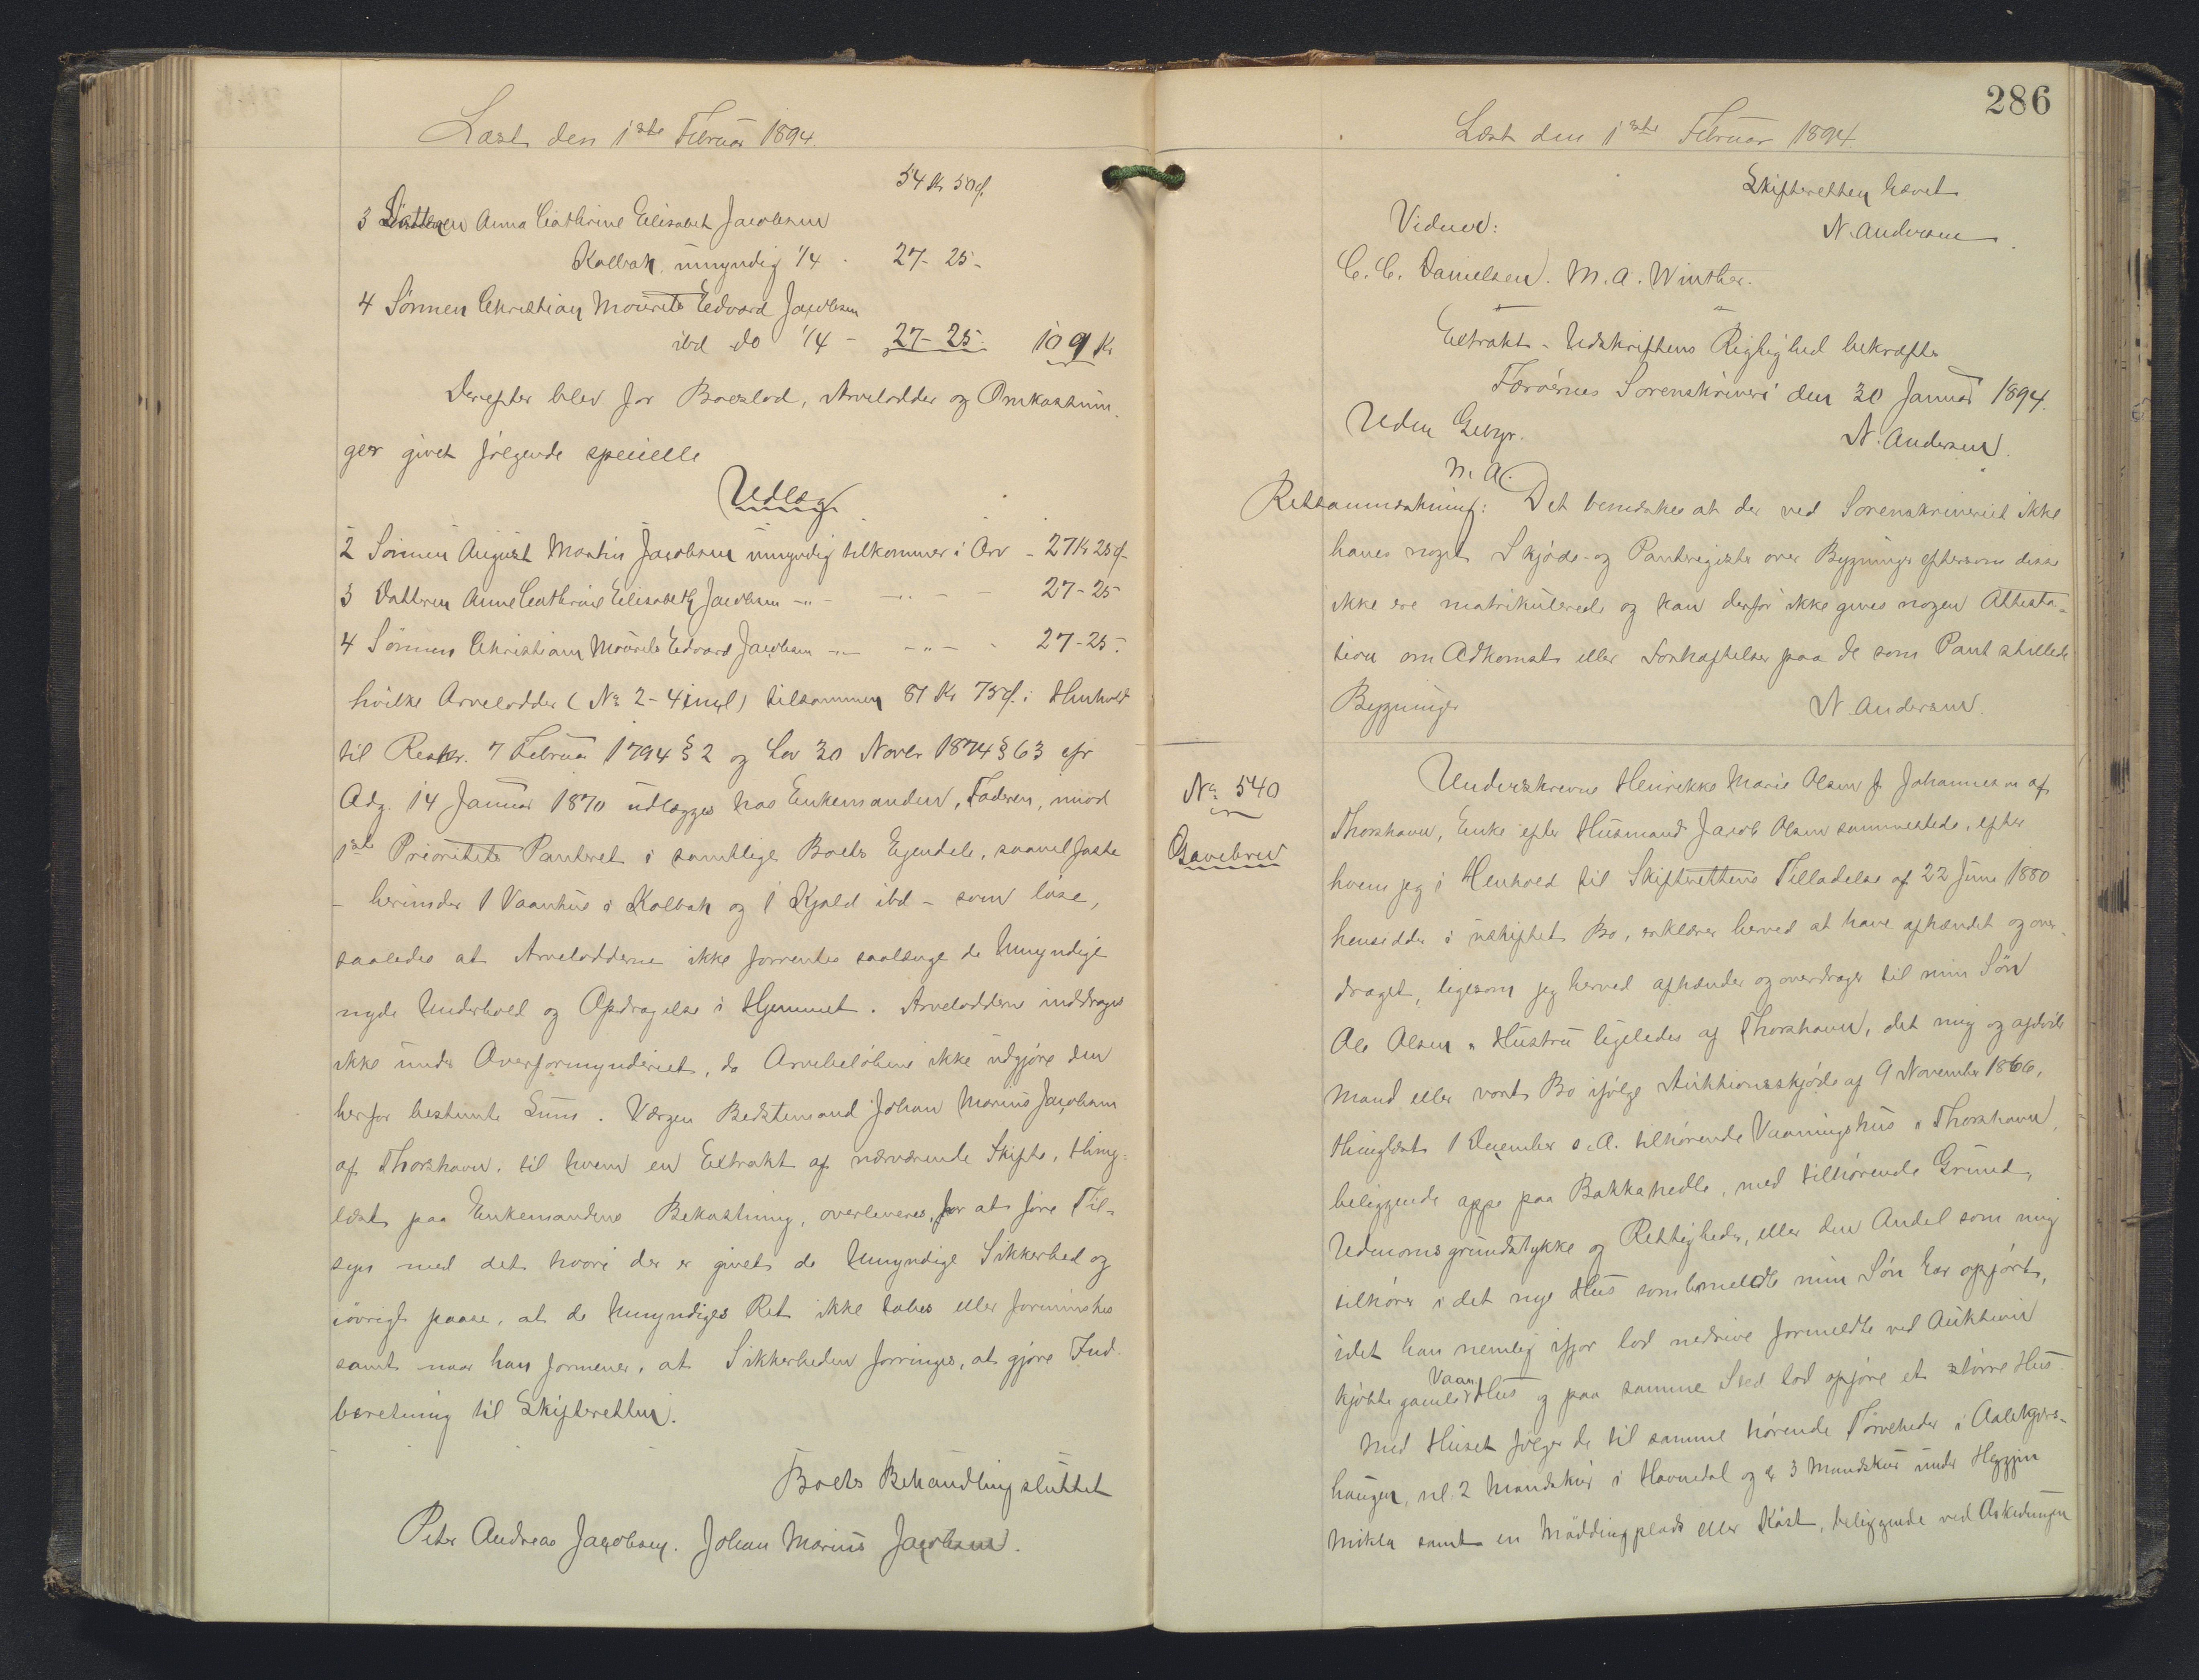 Læst den 1ste Februar 1894.
54 Kr 50 ø.
3 Datteren Anna Cathrine Elisabet Jacobsen
Kolbak, umyndig 1/4 - 27 - 25 -
4 Sönnen Christian Mourits Edvard Jacobsen
ibd do 1/4 - 27 - 25 - 109 Kr
Derefter blev for Boeslod, Arvelodder og Omkostnin-
ger givet følgende specielle
Udlæg
2 Sönnen August Martin Jacobsen umyndig tilkommer i Arv - 27 Kr 25 ø
3 Datteren Anne Cathrine Elisabeth Jacobsen -"- -"- - 27 - 25
4 Sönnen Christian Mourits Edvard Jacobsen -"- -"- - 27 - 25 -
hvilke Arvelodder (No 2-4 incl) tilsammen 81 Kr 75 ø. i Henhold
til Reskr. 7 Februar 1794 § 2 og Lov 30 Novbr 1874 § 63 cfr
Adg. 14 Januar 1870 udlægges hos Enkemanden, Faderen, mod
1ste Prioritets Panteret i samtlige Boets Ejendele, saavel faste
- herunder 1 Vaanhus i Kolbak og 1 Kjald ibd - som løse,
saaledes at Arvelodderne ikke forrentes saalænge de Umyndige
nyde Underhold og Opdragelse i Hjemmet. Arvelodderne inddrages
ikke under Overformynderiet, da Arvebeløbene ikke udgjøre den
herfor bestemte Sum. Værgen Bedstemand Johan Marius Jacobsen
af Thorshavn, til hvem en Extrakt af nærværende Skifte, thing-
læst paa Enkemandens Bekostning, overleveres, for at føre Til-
syn med det hvori der er givet de Umyndige Sikkerhed og
iøvrigt paase, at de Umyndiges Ret ikke tabes eller forminskes
samt naar han formener, at Sikkerheden forringes, at gjøre Ind-
beretning til Skifteretten.
Boets Behandling sluttet
Peter Andreas Jacobsen. Johan Marius Jacobsen.
286
Læst den 1ste Februar 1894.
Skifteretten hævet
Vidner: N. Andersen.
C. C. Danielsen. M. A. Winther.
Extrakt-Udskriftens Rigtighed bekræftes
Færøernes Sorenskriveri den 30 Januar 1894.
Uden Gebyr. N. Andersen.
N. A.
Retsanmærkning: Det bemærkes at der ved Sorenskriveriet ikke
haves noget Skjøde- og Panteregister over Bygninger eftersom disse
ikke ere matrikulerede og kan derfor ikke gives nogen Attesta-
tion om Adkomst eller Forhæftelser paa de som Pant stillede
Bygninger N. Andersen.
No 540
Gavebrev
Underskrevne Henrikke Marie Olsen f. Johannesen af
Thorshavn, Enke efter Husmand Jacob Olsen sammesteds, efter
hvem jeg i Henhold til Skifterettens Tilladelse af 22 Juni 1880
hensidder i uskiftet Bo, erklærer herved at have afhændet og over-
draget, ligesom jeg herved afhænder og overdrager til min Søn
Ole Olsen s Hustru ligeledes af Thorshavn, det mig og afdøde
Mand eller vort Bo ifølge Auktionsskjøde af 9 November 1866,
thinglæst 1 December s. A. tilhørende Vaaningshus i Thorshavn,
beliggende oppe paa Bakkahedle, med tilhørende Grund,
Udenomsgrundstykke og Rettigheder, eller den Andel som mig
tilhører i det nye Hus som bemeldte min Søn har opført,
idet han nemlig ifjor lod nedrive formeldte ved Auktion
kjøbte gamle Vaan-Hus og paa samme Sted lod opføre et større Hus.
Med Huset følger de til samme hørende Törveheder i
haugen, nl. 2 Mandskur i Havnedal og 3 Mandskur under Heggjin
Mikla samt en Möddingplads eller Kast, beliggende ved